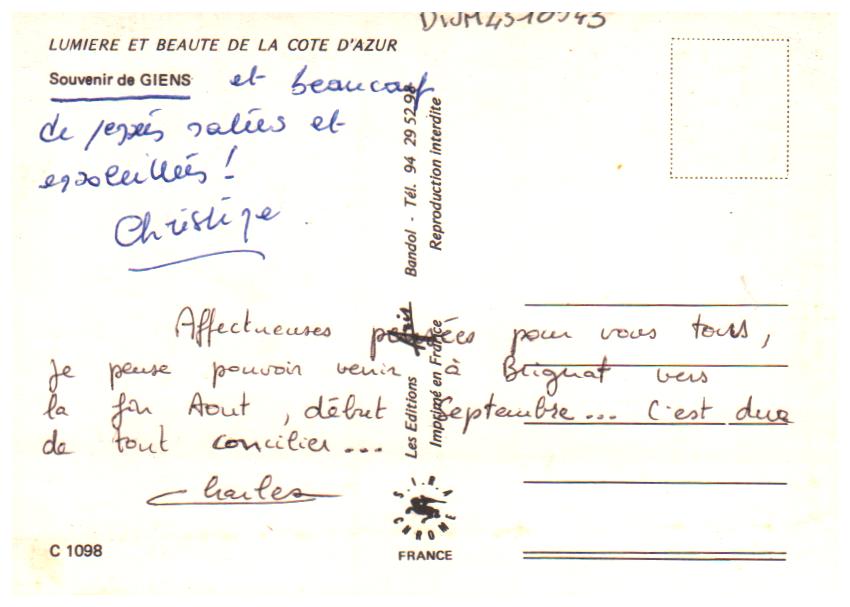 DIJM4510343
LUMIERE ET BEAUTE DE LA COTE D'AZUR
Souvenir de GIENS et beaucoup
de salées et
ensoleillées !
Christine
Affectueuses pensées pour vous tous,
je pense pouvoir venir à Brignat vers
la fin Aout, début Septembre... C'est dur
de tout concilier...
Charles
Les Editions Aris Bandol - Tél. 94 29 52 98
Imprimé en France Reproduction Interdite
S.I.R.A. CHROME
FRANCE
C 1098